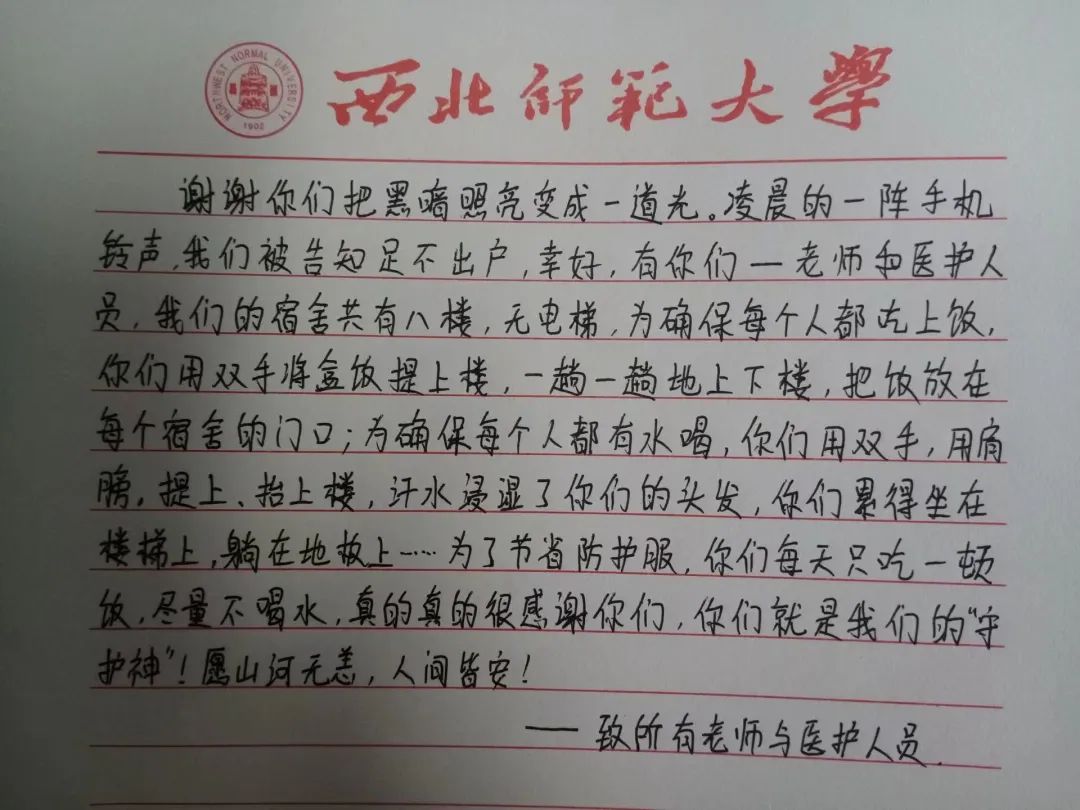 NORTHWEST NORMAL UNIVERSITY
1902
西北师范大学
谢谢你们把黑暗照亮变成一道光。凌晨的一阵手机
铃声,我们被告知足不出户,幸好,有你们—老师和医护人
员,我们的宿舍共有八楼,无电梯,为确保每个人都吃上饭,
你们用双手将盒饭提上楼,一趟一趟地上下楼,把饭放在
每个宿舍的门口;为确保每个人都有水喝,你们用双手,用肩
膀,提上、抬上楼,汗水浸湿了你们的头发,你们累得坐在
楼梯上,躺在地板上……为了节省防护服,你们每天只吃一顿
饭,尽量不喝水,真的真的很感谢你们,你们就是我们的"守
护神"!愿山河无恙,人间皆安!
——致所有老师与医护人员.